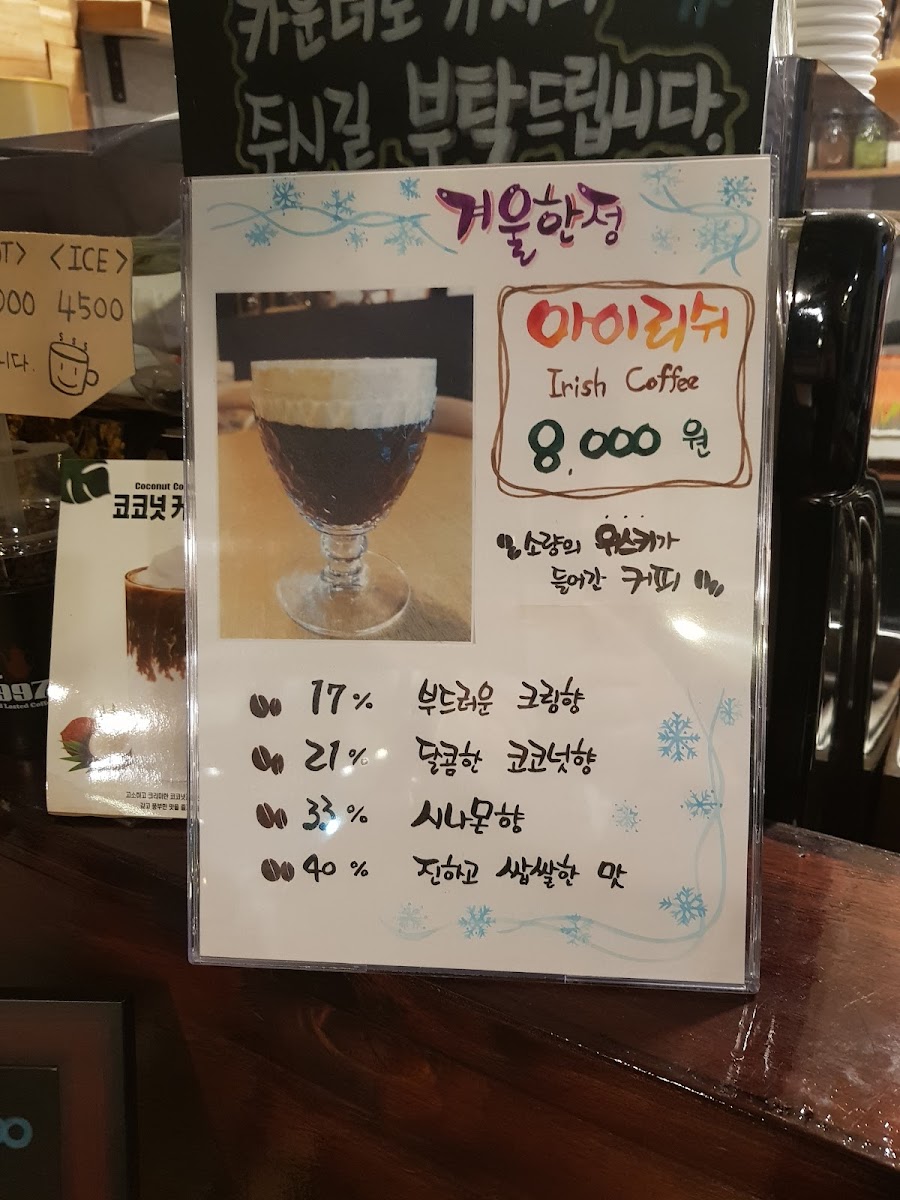 주시길 부탁드립니다.
<ICE>
4500
겨울한정
아이리쉬
Irish Coffee
8,000 원
소량의 위스키가
들어간 커피
17% 부드러운 크림향
21% 달콤한 코코넛향
33% 시나몬향
40% 진하고 쌉쌀한 맛
Coconut
코코넛
고소하고 크리미한